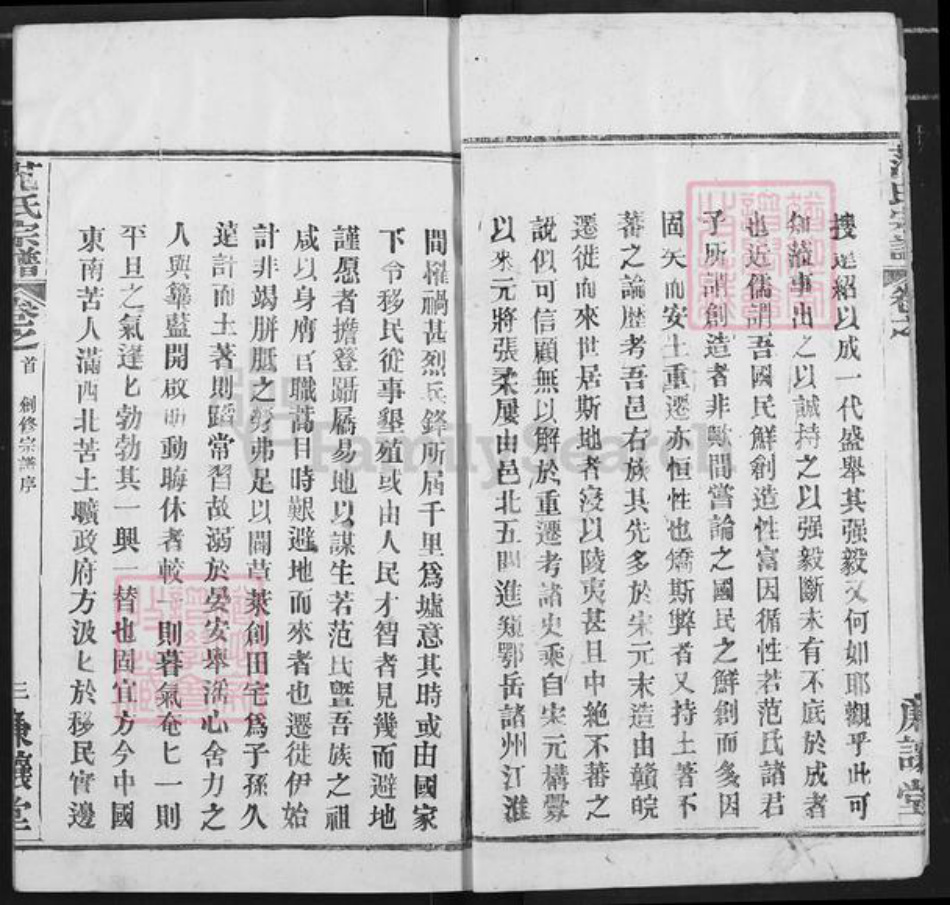 范氏宗譜 卷之
廉讓堂
搜 紹以成一代盛舉其强毅又何如耶觀乎此可
知蕆事出之以誠持之以强毅斷未有不底於成者
也近儒謂吾國民鮮創造性富因循性若范氏諸君
子所謂創造者非歟間嘗論之國民之鮮創而多因
固矣而安土重遷亦恒性也矯斯弊者又持土著不
蕃之論歷考吾邑右族其先多於宋元末造由贛皖
遷徙而來世居斯地者寖以陵夷甚且中絶不蕃之
說似可信顧無以解於重遷考諸史乘自宋元構釁
以來元將張柔屢由邑北五關進窺鄂岳諸州江淮
間罹禍甚烈兵鋒所届千里爲墟意其時或由國家
下令移民從事墾殖或由人民才智者見幾而避地
謹愿者擔登躡屩易地以謀生若范氏曁吾族之祖
咸以身膺官職蒿目時艱避地而來者也遷徙伊始
計非竭胼胝之勞弗足以闢草萊創田宅爲子孫久
遠計而土著則蹈常習故溺於晏安舉 心舍力之
人與篳藍開啟 動晦休者較一則暮氣奄匕一則
平旦之氣蓬匕勃勃其一興一替也固宜方今中國
東南苦人滿西北苦土曠政府方汲匕於移民實邊
范氏宗譜 卷之首 創修宗譜序 三 廉讓堂
FamilySearch